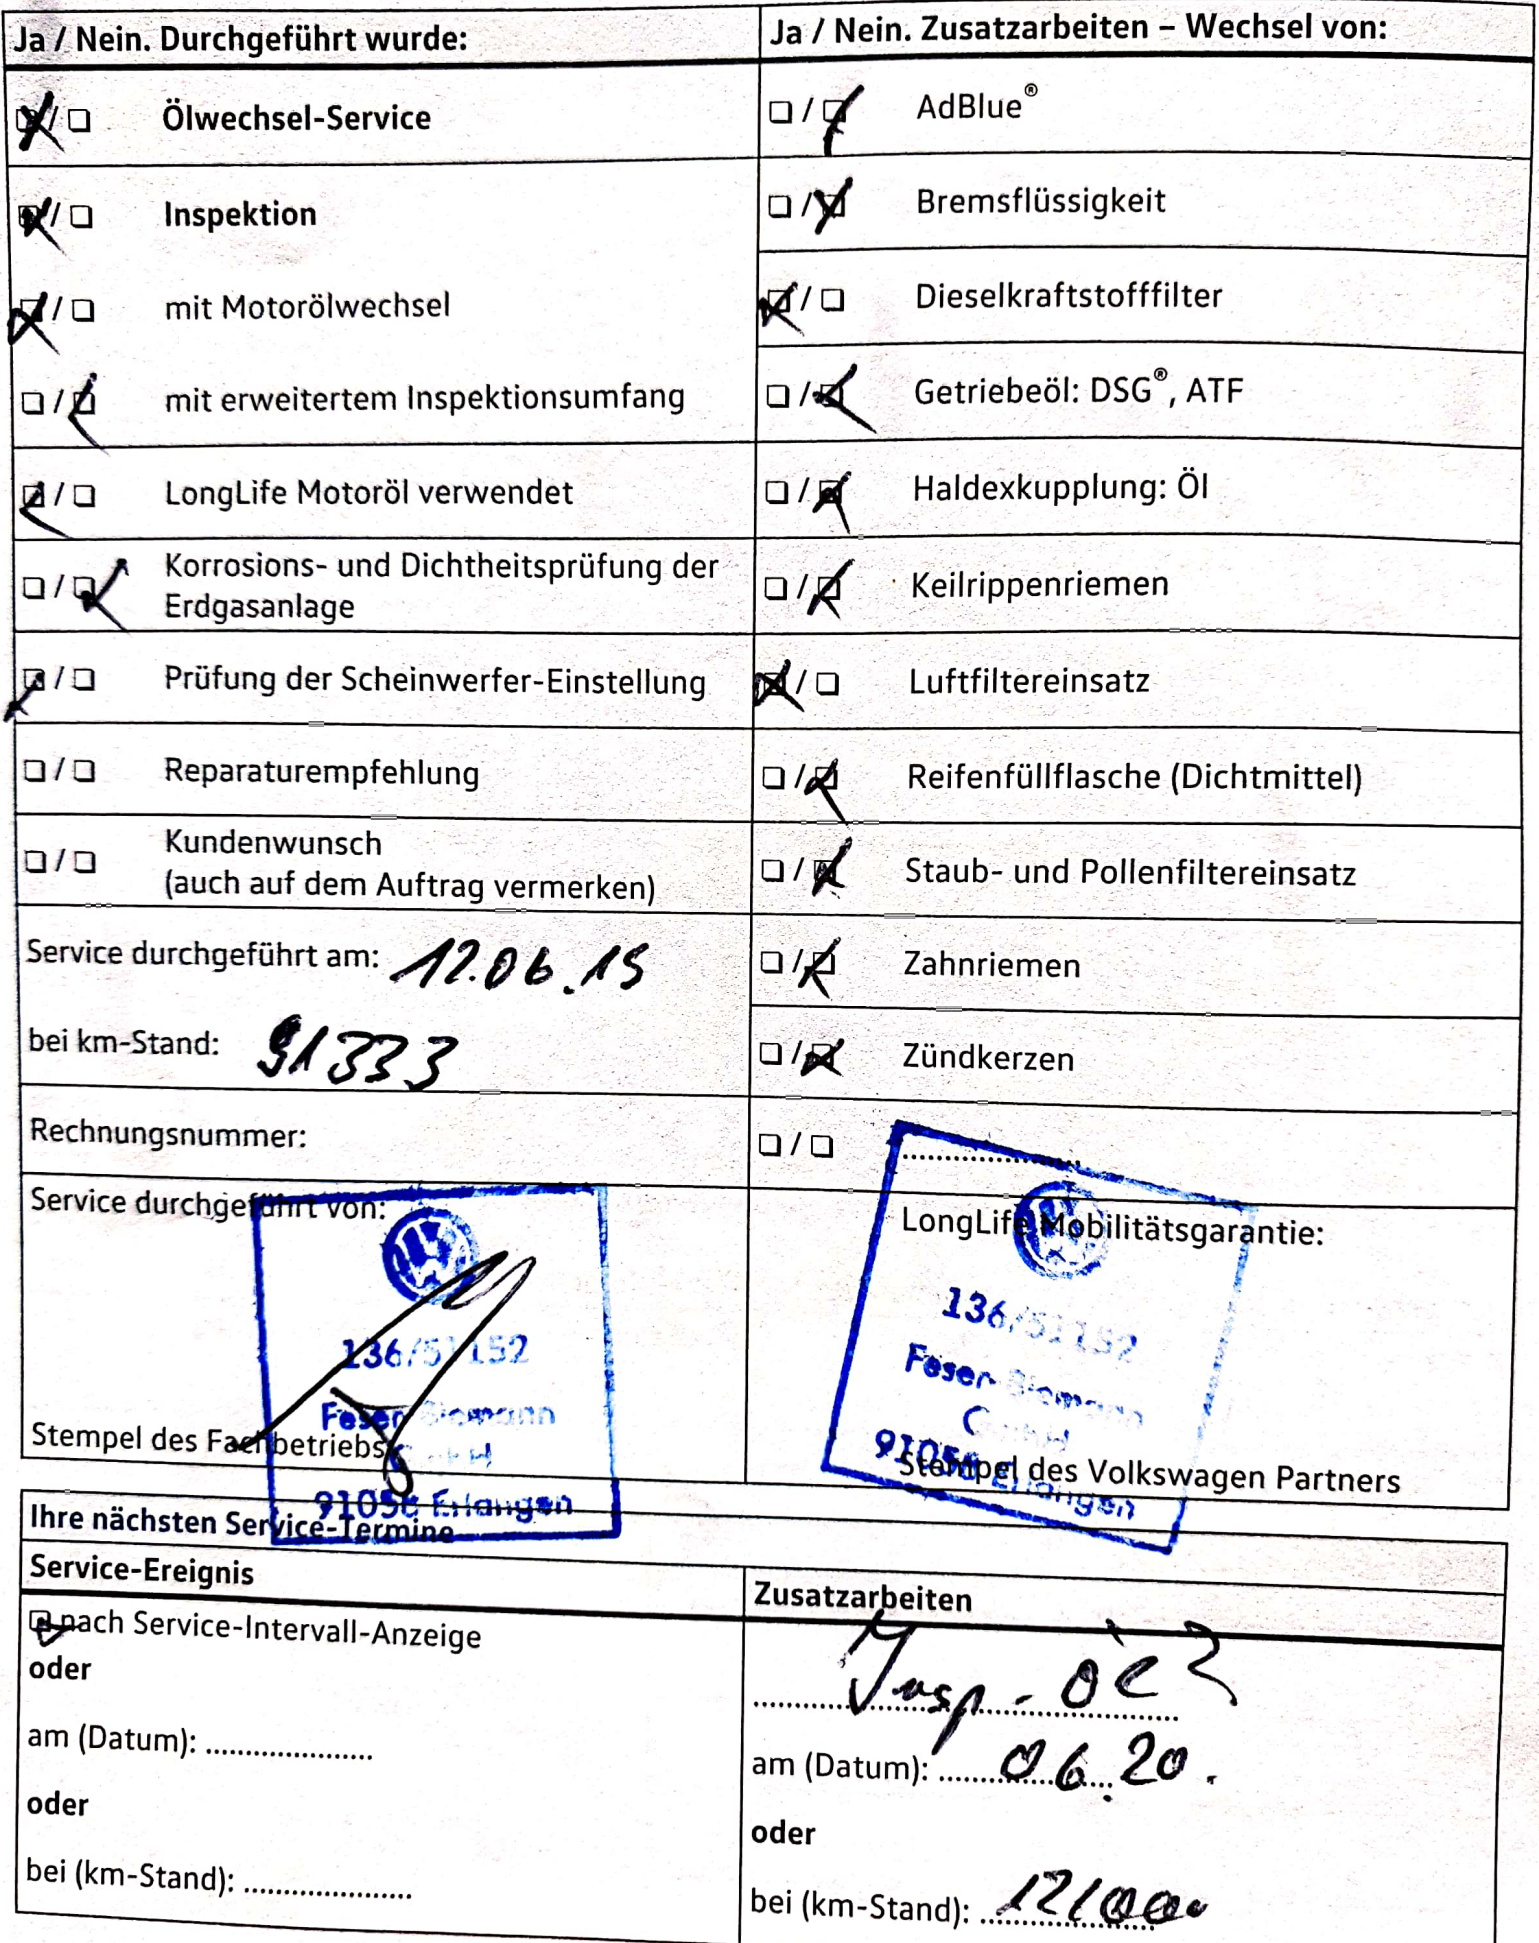 Ja / Nein. Durchgeführt wurde:
☒ / ☐ Ölwechsel-Service
☒ / ☐ Inspektion
☒ / ☐ mit Motorölwechsel
☐ / ☒ mit erweitertem Inspektionsumfang
☒ / ☐ LongLife Motoröl verwendet
☐ / ☒ Korrosions- und Dichtheitsprüfung der
Erdgasanlage
☒ / ☐ Prüfung der Scheinwerfer-Einstellung
☐ / ☐ Reparaturempfehlung
☐ / ☐ Kundenwunsch
(auch auf dem Auftrag vermerken)
Service durchgeführt am: 12.06.19
bei km-Stand: 91333
Rechnungsnummer:
Service durchgeführt von:
136/51152
Feser-Biemann
GmbH
91056 Erlangen
Stempel des Fachbetriebs
Ja / Nein. Zusatzarbeiten – Wechsel von:
☐ / ☒ AdBlue®
☐ / ☒ Bremsflüssigkeit
☒ / ☐ Dieselkraftstofffilter
☐ / ☒ Getriebeöl: DSG®, ATF
☐ / ☒ Haldexkupplung: Öl
☐ / ☒ Keilrippenriemen
☒ / ☐ Luftfiltereinsatz
☐ / ☒ Reifenfüllflasche (Dichtmittel)
☐ / ☒ Staub- und Pollenfiltereinsatz
☐ / ☒ Zahnriemen
☐ / ☒ Zündkerzen
☐ / ☐ ....................
LongLife Mobilitätsgarantie:
136/51152
Feser-Biemann
GmbH
91056 Erlangen
Stempel des Volkswagen Partners
Ihre nächsten Service-Termine
Service-Ereignis
☒ nach Service-Intervall-Anzeige
oder
am (Datum): ....................
oder
bei (km-Stand): ....................
Zusatzarbeiten
Insp.
am (Datum): 06.20.
oder
bei (km-Stand): 121000